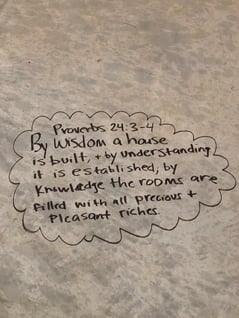 Proverbs 24:3-4
By Wisdom a house
is built, + by understanding
it is established, by
Knowledge the rooms are
filled with all precious +
Pleasant riches.